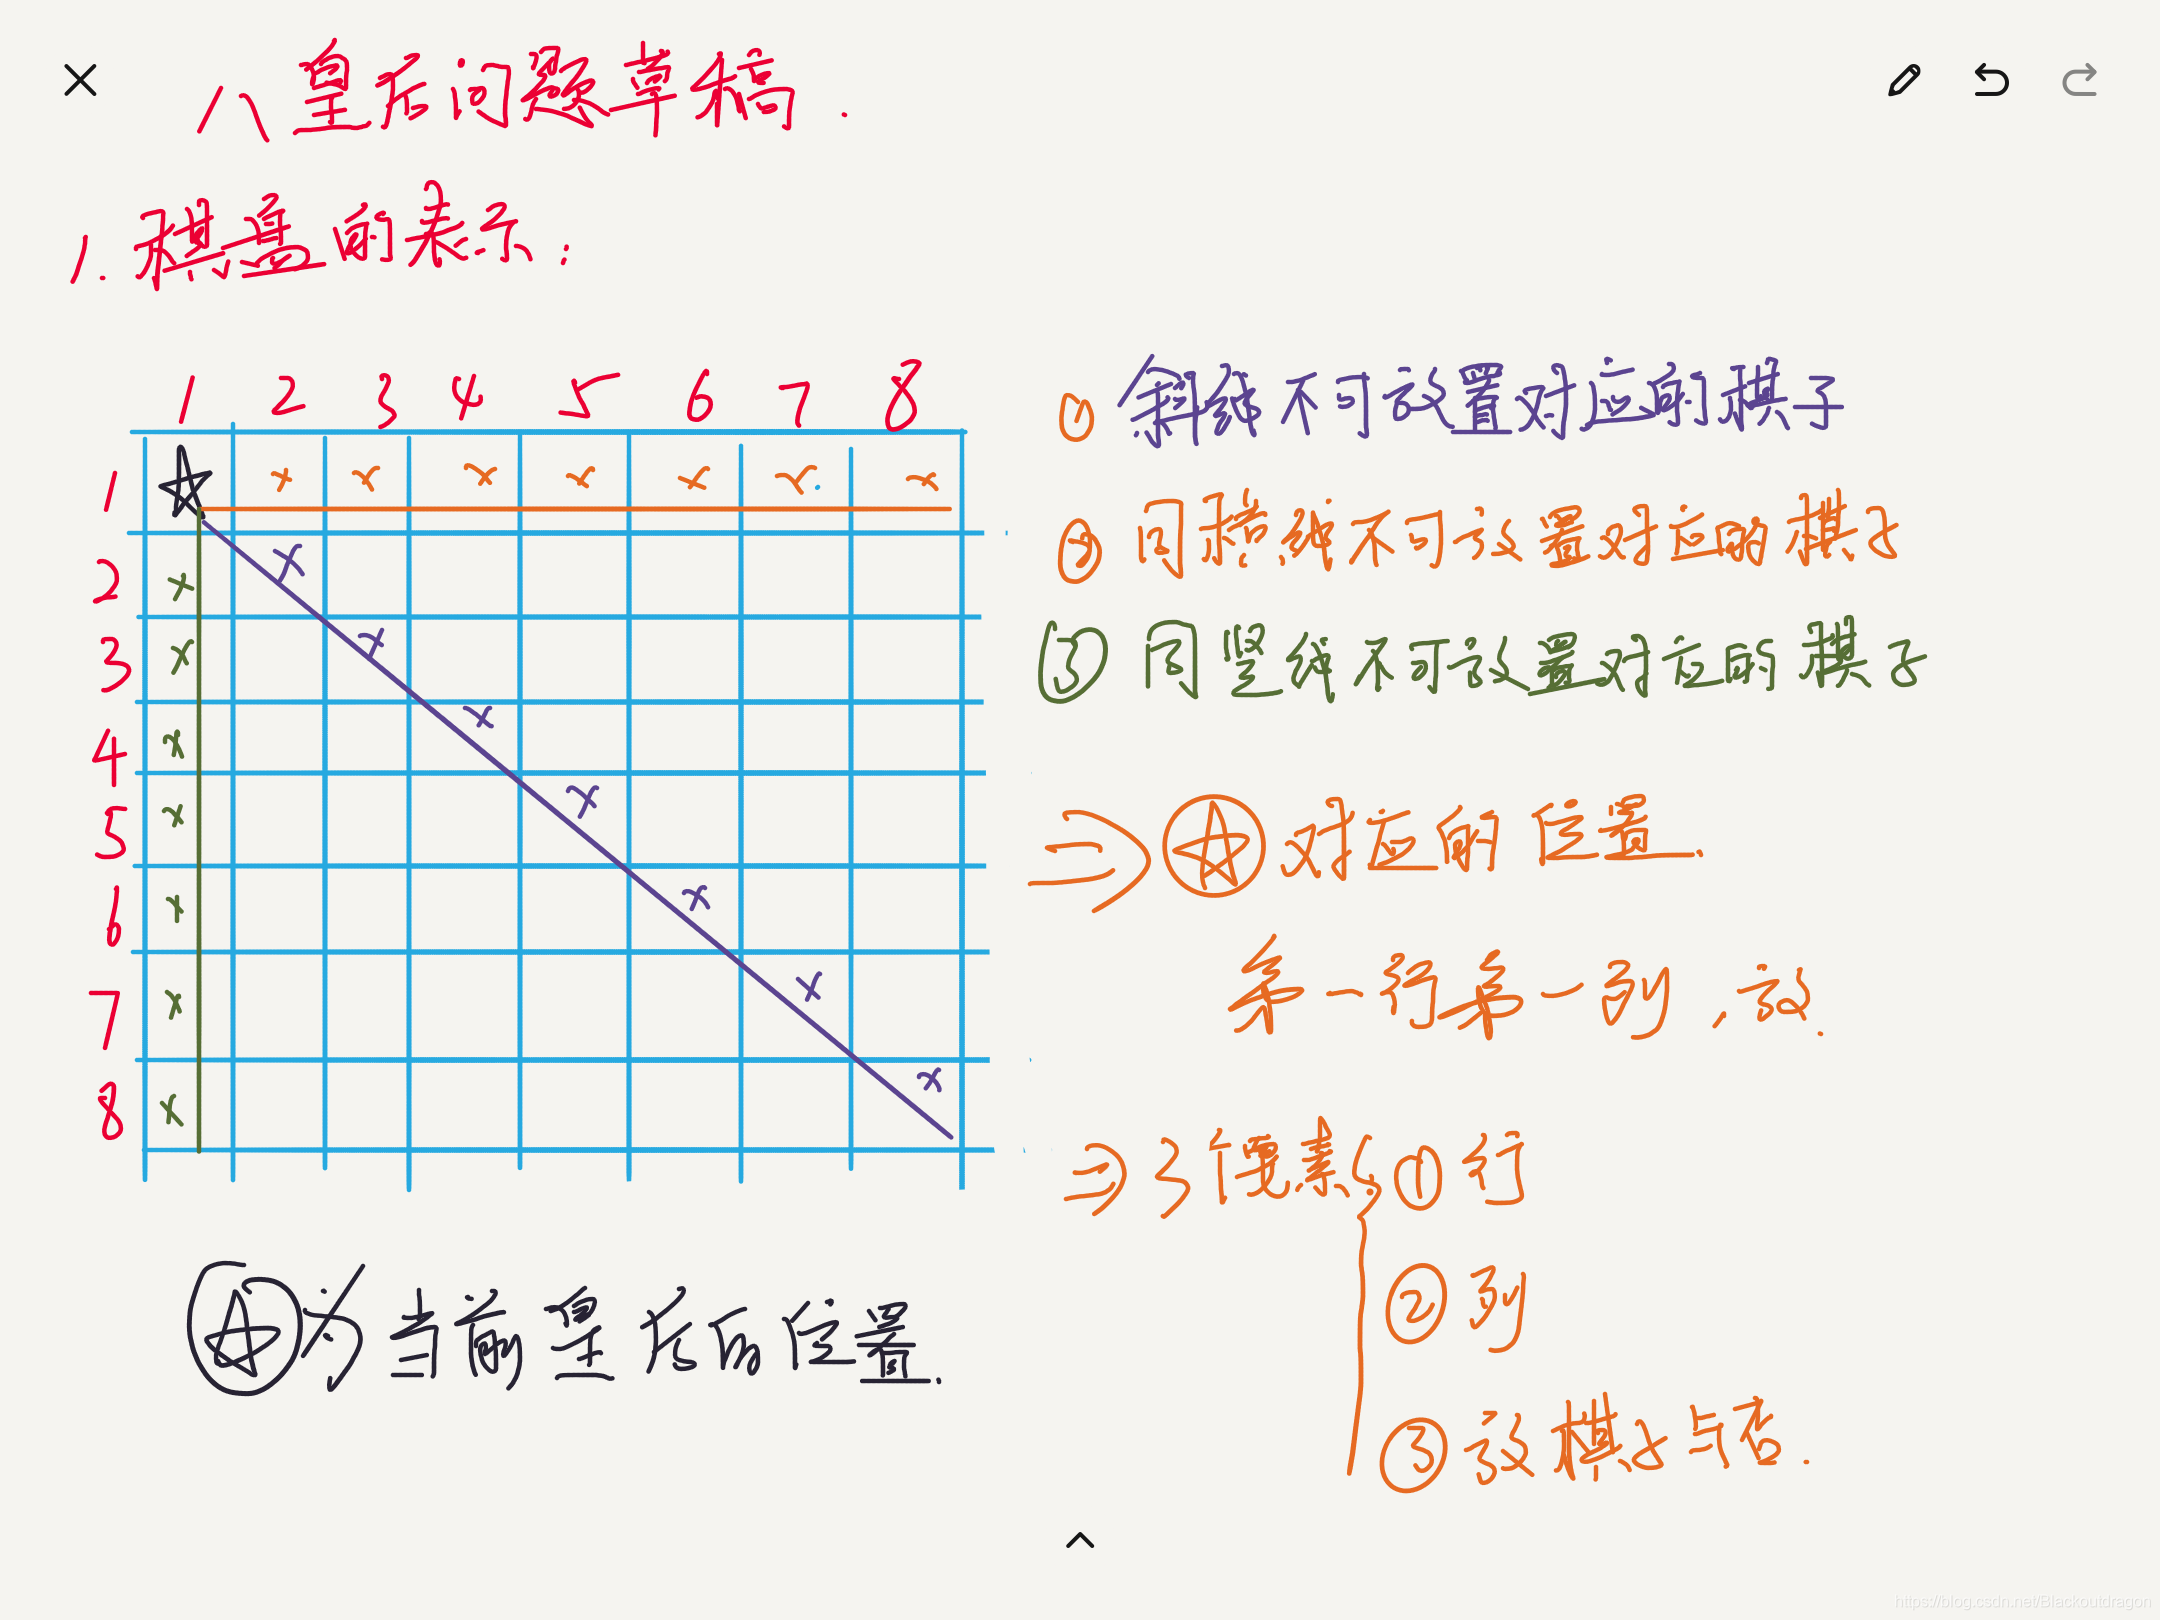 八皇后问题草稿.
1. 棋盘的表示:
1 2 3 4 5 6 7 8
1 x x x x x x x
2 x x
3 x x
4 x x
5 x x
6 x x
7 x x
8 x x
☆为当前皇后的位置.
① 斜线不可放置对应的棋子
② 同横线不可放置对应的棋子
③ 同竖线不可放置对应的棋子
⇒ ☆对应的位置.
第一行第一列,放.
⇒ 3个要素: ①行
②列
③放棋子与否.
https://blog.csdn.net/Blackoutdragon